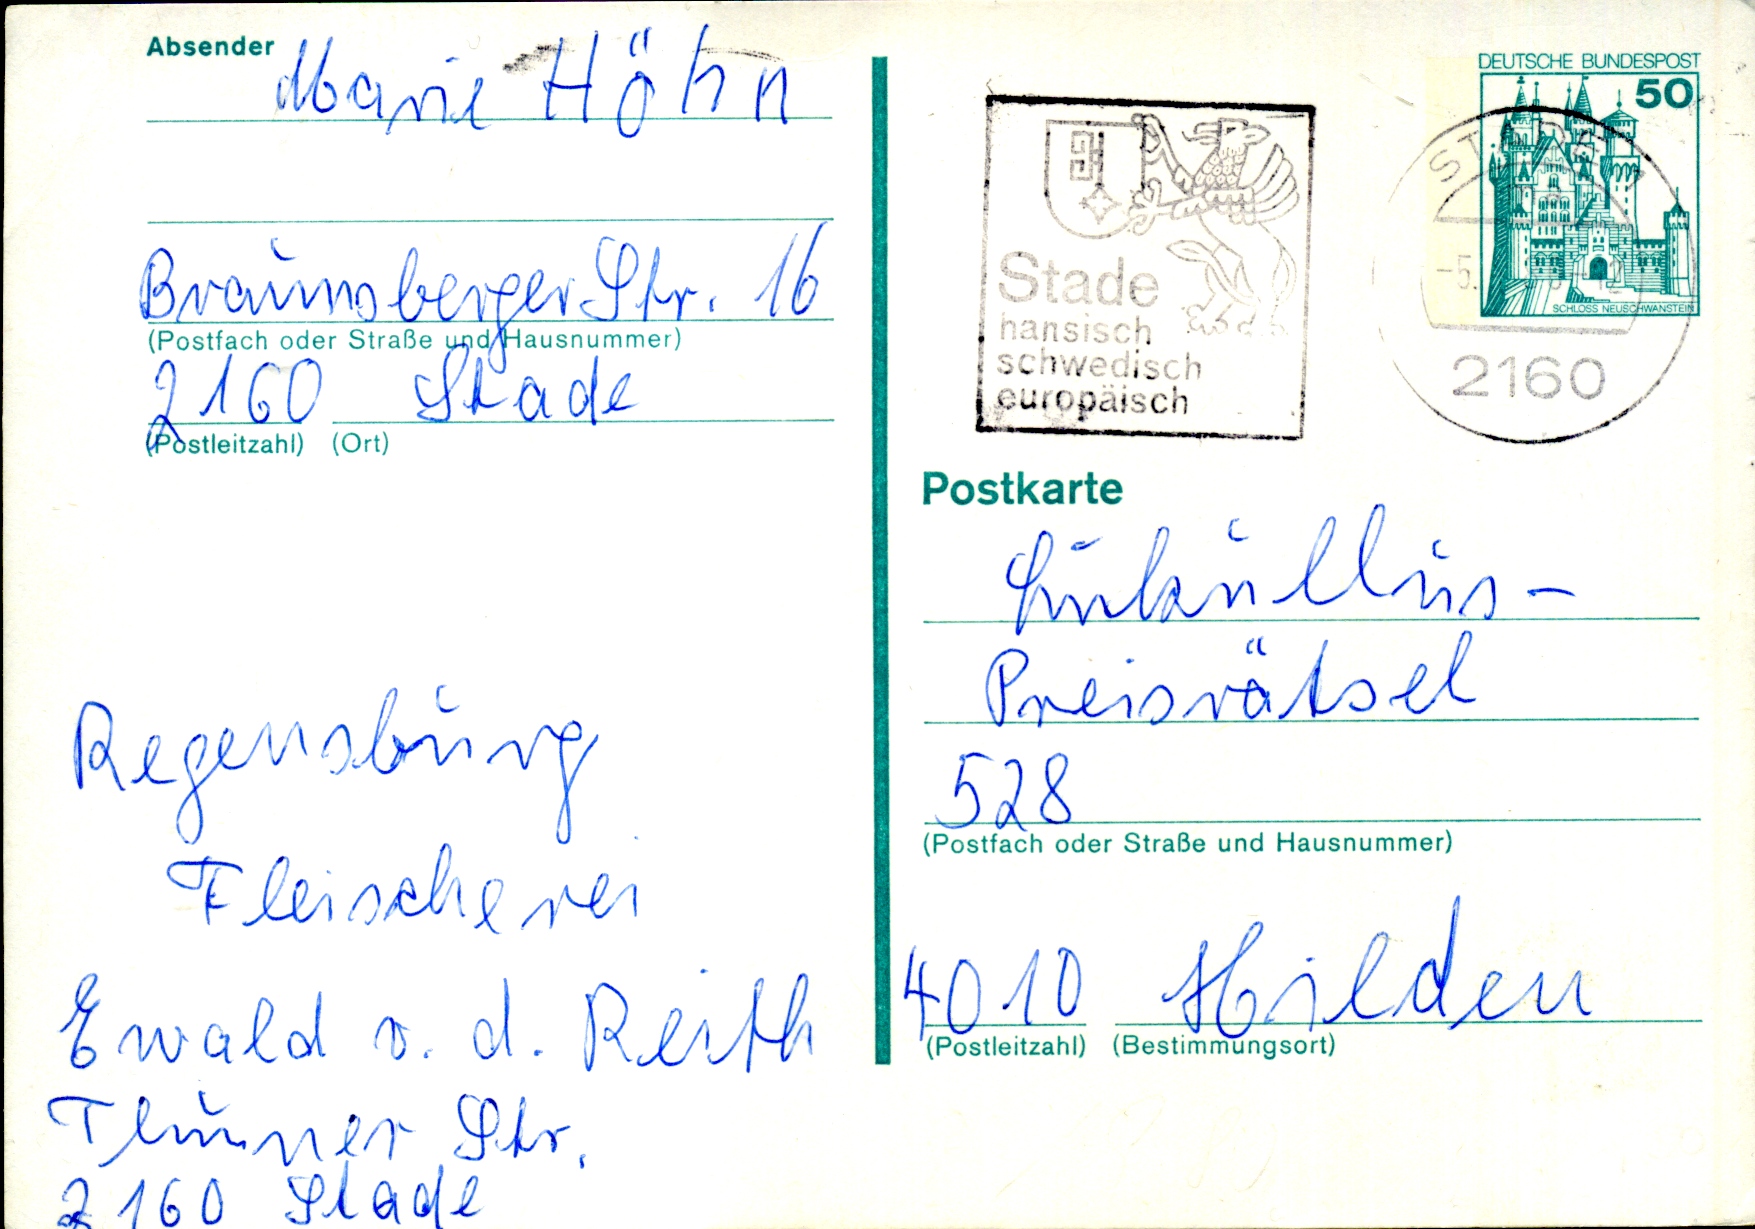 Absender
Marie Höhn
Braunsberger Str. 16
(Postfach oder Straße und Hausnummer)
2160 Stade
(Postleitzahl) (Ort)
Regensburg
Fleischerei
Ewald v. d. Reith
Str.
2160 Stade
DEUTSCHE BUNDESPOST
50
SCHLOSS NEUSCHWANSTEIN
Stade
hansisch
schwedisch
europäisch
2160
Postkarte
Lukullus-
Preisrätsel
528
(Postfach oder Straße und Hausnummer)
4010 Hilden
(Postleitzahl) (Bestimmungsort)